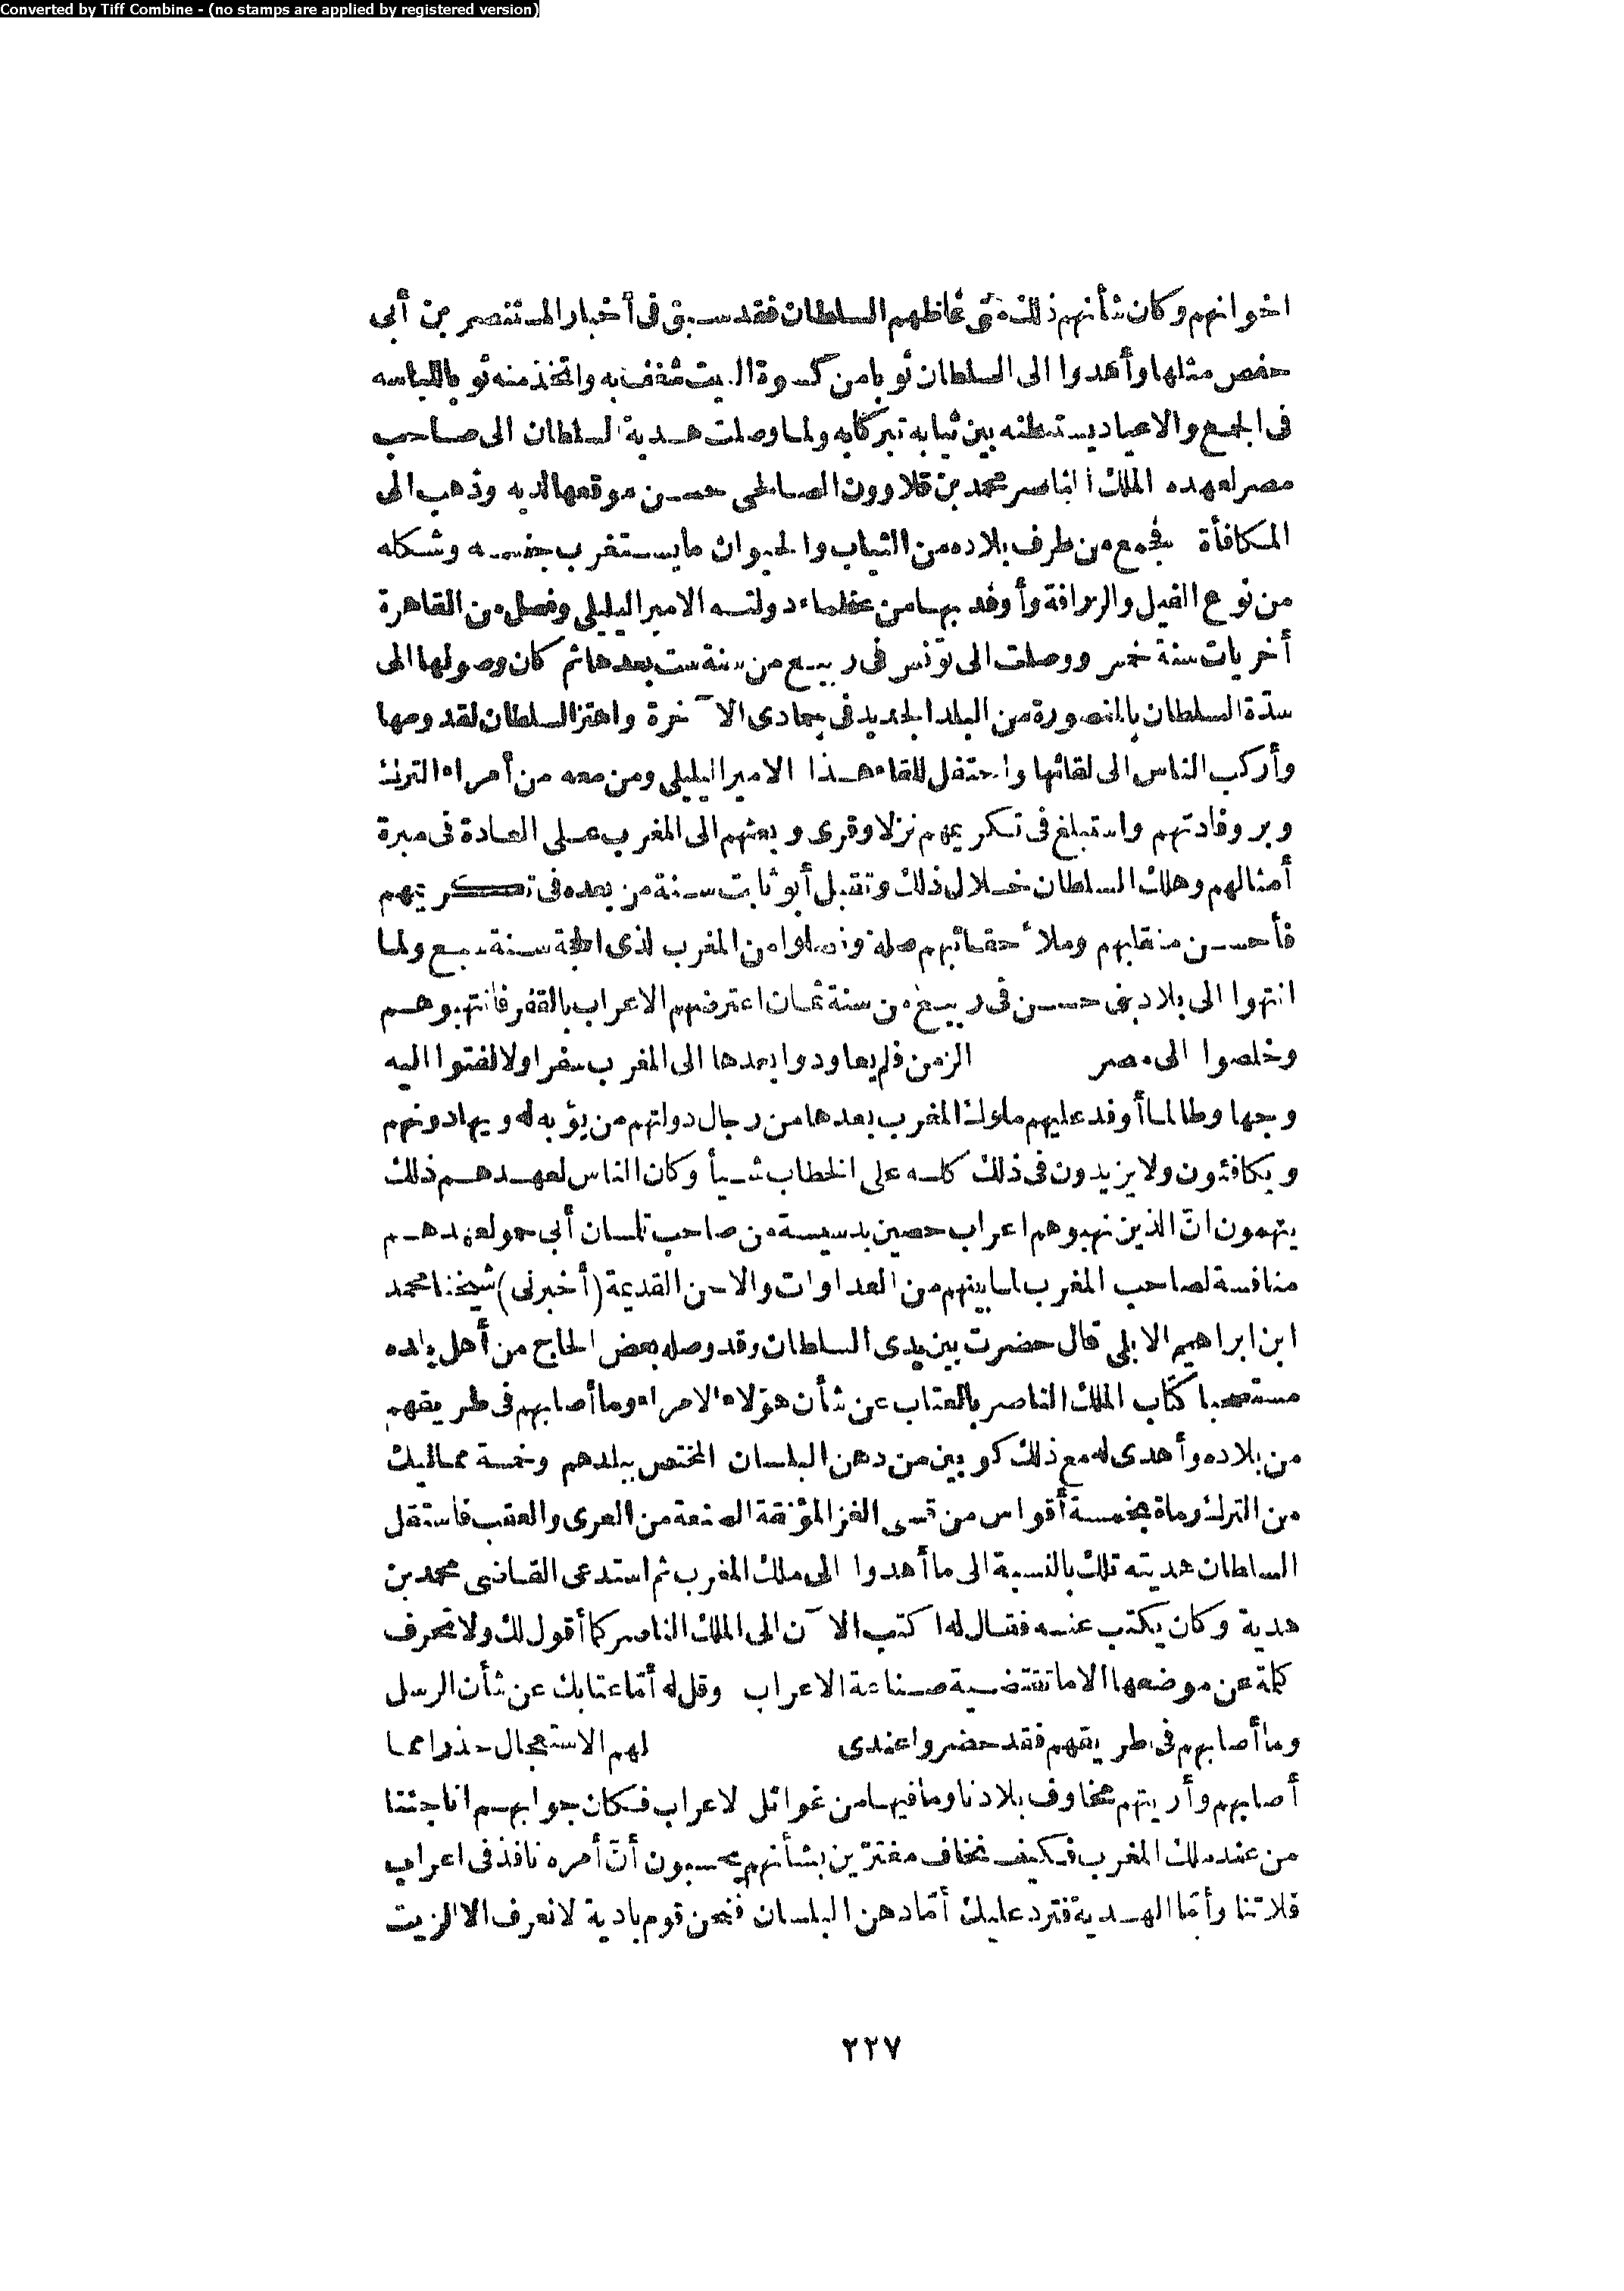 Converted by Tiff Combine - (no stamps are applied by registered version)
اخوانهم وكان شأنهم ذلك متى غاظهم السلطان فقد سبق فى أخبار المستنصر بن أبى
حفص مثلها وأهدوا الى السلطان ثوبا من كسوة البيت شغف به واتخذ منه ثوبا للباسه
فى الجمع والاعياد يستبطنه بين ثيابه تبركا به ولما وصلت هدية السلطان الى صاحب
مصر لعهده الملك الناصر محمد بن قلاوون الصالحى حسن موقعها لديه وذهب الى
المكافأة فجمع من طرف بلاده من الثياب والحيوان ما يستغرب جنسه وشكله
من نوع الفيل والزرافة وأوفد بها من عظماء دولته الامير اليليلى وفصل من القاهرة
أخريات سنة خمس ووصلت الى تونس فى ربيع من سنة ست بعدها ثم كان وصولها الى
سدّة السلطان بالمنصورة من البلد الجديد فى جمادى الآخرة واهتز السلطان لقدومها
وأركب الناس الى لقائها واحتفل للقاء هذا الامير اليليلى ومن معه من أمراء الترك
وبر وفادتهم واستبلغ فى تكريمهم نزلا وقرى وبعثهم الى المغرب على العادة فى مبرة
أمثالهم وهلك السلطان خلال ذلك وتقبل أبو ثابت سنة من بعده فى تكريمهم
فأحسن منقلبهم وملأ حقائبهم صلة وفصلوا من المغرب لذى الحجة سنة سبع ولما
انتهوا الى بلاد بنى حسن فى ربيع من سنة ثمان اعترضهم الاعراب بالقفر فانتهبوهم
وخلصوا الى مصر الزمن فلم يعاودوا بعدها الى المغرب سفرا ولا لفتوا اليه
وجها وطالما أوفد عليهم ملوك المغرب بعدها من رجال دولتهم من يؤبه له ويهادونهم
ويكافئون ولا يزيدون فى ذلك كله على الخطاب شيأ وكان الناس لعهدهم ذلك
يتهمون انّ الذين نهبوهم اعراب حصين بدسيسة من صاحب تلمسان أبى حمو لعهدهم
منافسة لصاحب المغرب لما بينهم من العداوات والاحن القديمة (أخبرنى) شيخنا محمد
ابن ابراهيم الابلى قال حضرت بين يدى السلطان وقد وصله بعض الحاج من أهل بلده
مستصحبا كتاب الملك الناصر بالعتاب عن شأن هؤلاء الامراء وما أصابهم فى طريقهم
من بلاده وأهدى له مع ذلك كوبين من دهن البلسان المختص ببلدهم وخمسة مماليك
من الترك رماة بخمسة أقواس من قسى الغز المؤنقة الصنعة من العرى والعقب فاستقل
السلطان هديته تلك بالنسبة الى ما أهدوا الى ملك المغرب ثم استدعى القاضى محمد بن
هدية وكان يكتب عنه فقال له اكتب الآن الى الملك الناصر كما أقول لك ولا تحرف
كلمة عن موضعها الا ما تقتضية صناعة الاعراب وقل له أمّا عتابك عن شأن الرسل
وما أصابهم فى طريقهم فقد حضروا عندى لهم الاستعجال حذرا مما
أصابهم وأريتهم مخاوف بلادنا وما فيها من غوائل لاعراب فكان جوابهم انا جئنا
من عند ملك المغرب فكيف نخاف مغترّين بشأنهم يحسبون أنّ أمره نافذ فى اعراب
فلاتنا وأمّا الهدية فترد عليك أمّا دهن البلسان فنحن قوم بادية لا نعرف الا الزيت
٢٢٧